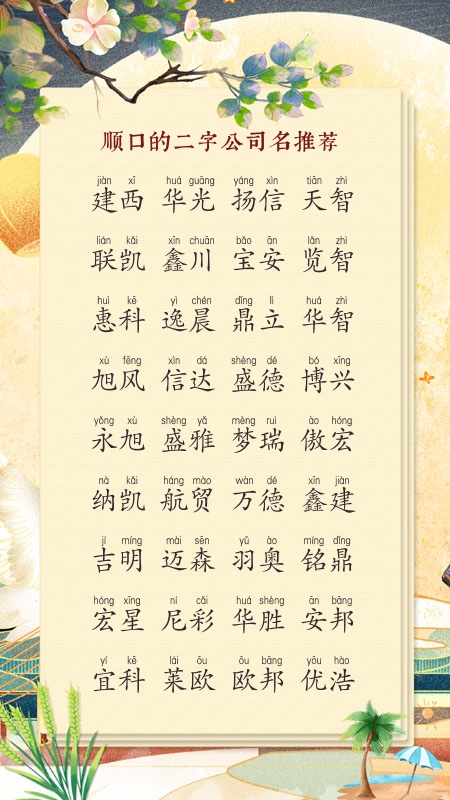 顺口的二字公司名推荐
jiàn xī huá guāng yáng xìn tiān zhì
建西 华光 扬信 天智
lián kǎi xīn chuān bǎo ān lǎn zhì
联凯 鑫川 宝安 览智
huì kē yì chén dǐng lì huá zhì
惠科 逸晨 鼎立 华智
xù fēng xìn dá shèng dé bó xīng
旭风 信达 盛德 博兴
yǒng xù shèng yǎ mèng ruì ào hóng
永旭 盛雅 梦瑞 傲宏
nà kǎi háng mào wàn dé xīn jiàn
纳凯 航贸 万德 鑫建
jí míng mài sēn yǔ ào míng dǐng
吉明 迈森 羽奥 铭鼎
hóng xīng ní cǎi huá shèng ān bāng
宏星 尼彩 华胜 安邦
yí kē lái ōu ōu bāng yōu hào
宜科 莱欧 欧邦 优浩